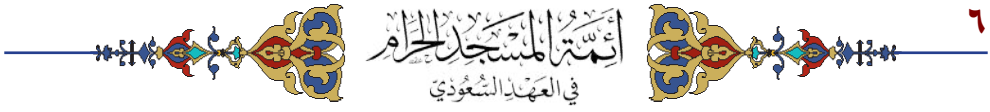 ٦
أَئِمَّةُ المَسْجِدِ الحَرَامِ
في العَهْدِ السُّعُوْدِيّ